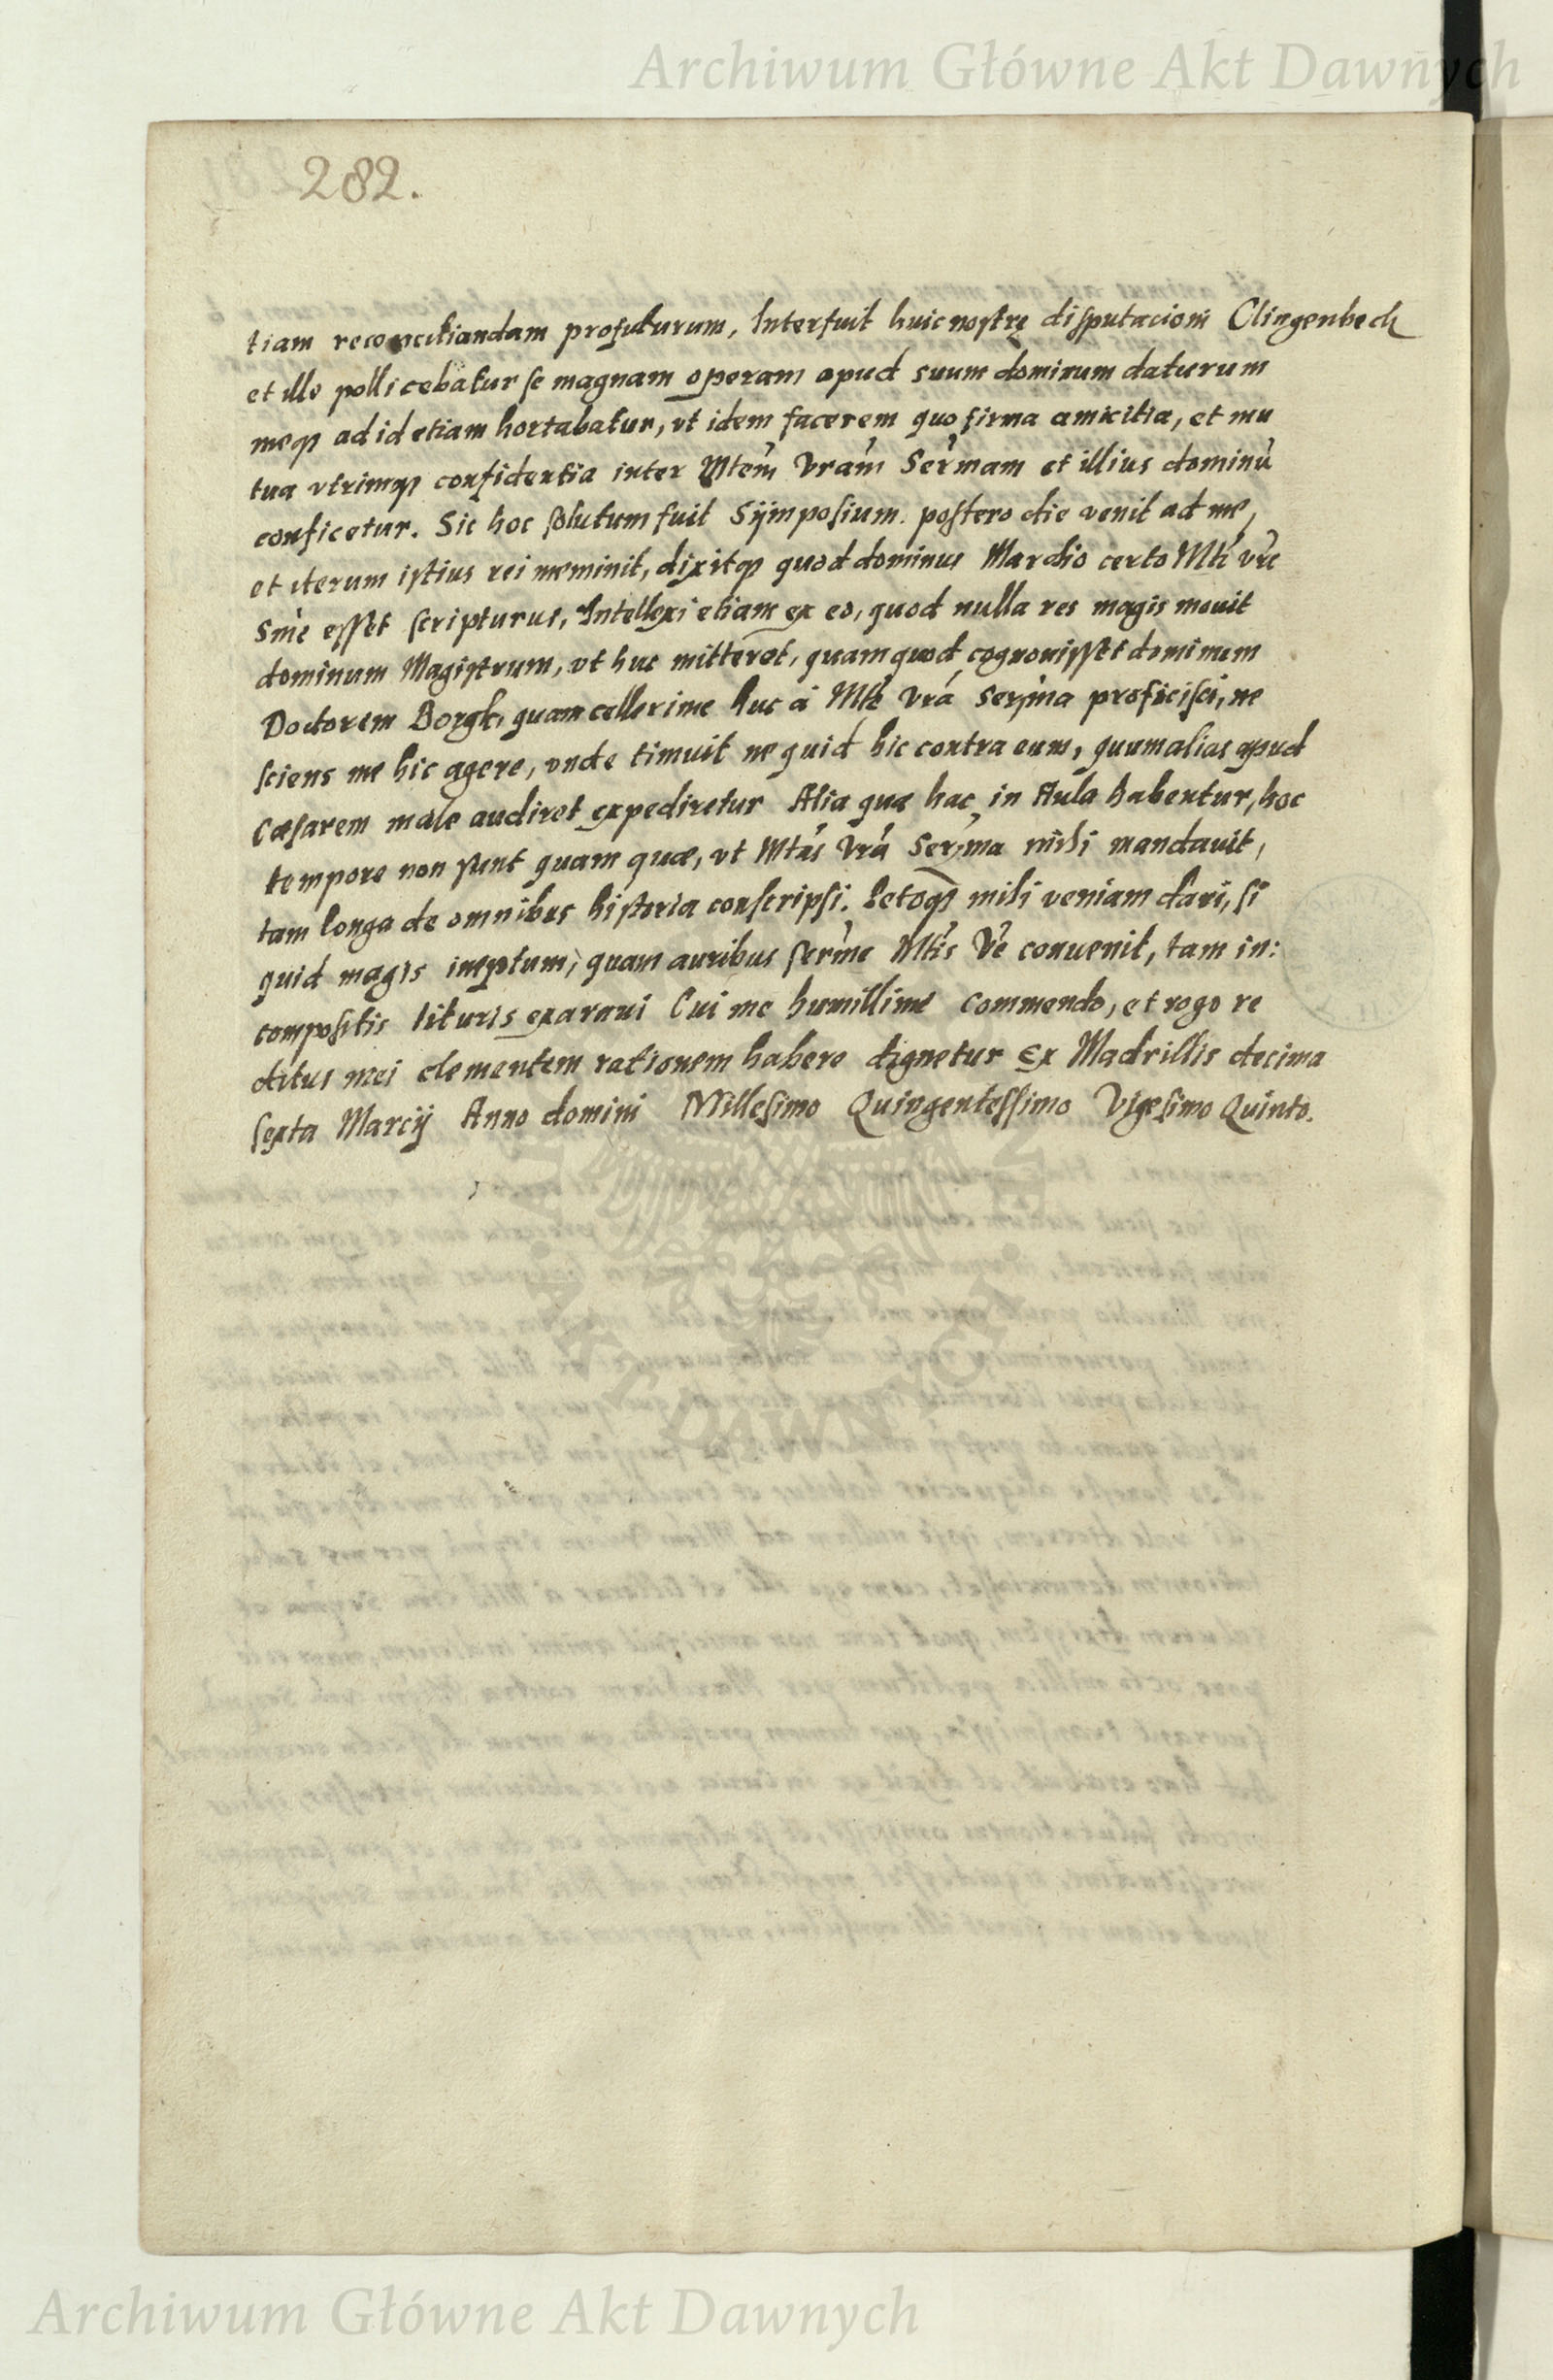 Archiwum Główne Akt Dawnych
282.
tiam reconciliandam profuturum, Interfuit huic nostrę disputacioni Clingenbeck
et ille pollicebatur se magnam operam apud suum dominum daturum
meqȝ ad id etiam hortabatur, vt idem facerem quo firma amicitia, et mu
tua vtrimqȝ confidentia inter Mtem Vram Sermam et illius dominu
conficetur. Sic hoc solutum fuit Sÿmposium. postero die venit ad me,
et iterum istius rei meminit, dixitqȝ quod dominus Marchio certo Mti vre
Sme esset scripturus, Intellexi etiam ex eo, quod nulla res magis mouit
dominum Magistrum, vt huc mitteret, quam quod cognouisset dominum
Doctorem Borgk, quam cellerime huc á Mte Vrá Serma proficisci, ne
sciens me hic agere, vnde timuit ne quid hic contra eum, quum alias apud
Cæsarem male audiret expediretur Alia quæ hac in Aula habentur, hoc
tempore non sunt quam quæ, vt Mtás Vrá Serma mihi mandauit,
tam longa de omnibus historia conscripsi. Petoqȝ mihi veniam dari, si
quid magis ineptum, quam auribus serme Mtis Ve conuenit, tam in:
compositis lituris exaraui Cui me humillime commendo, et rogo re
ditus mei clementem rationem habere dignetur Ex Madrillis decima
sexta Marcÿ Anno domini Millesimo Quingentessimo Vigesimo Quinto.
AKT DAWNYCH
Archiwum Główne Akt Dawnych